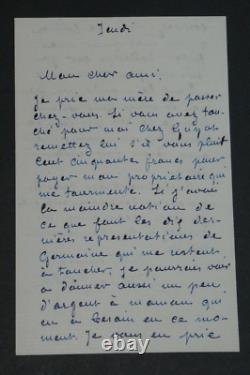 Jeudi
Mon cher ami,
Je prie ma mère de passer
chez-vous. Si vous avez tou-
ché pour moi chez
remettez lui s'il vous plait
cent cinquante francs pour
payer mon propriétaire qui
me tourmente. Si j'avais
la moindre notion de
ce que font les dix der-
nières représentations de
Germaine qui me restent
à toucher, je pourrais vous
à donner aussi un peu
d'argent à maman qui
en a besoin en ce mo-
ment. Je vous en prie
©thebay.com